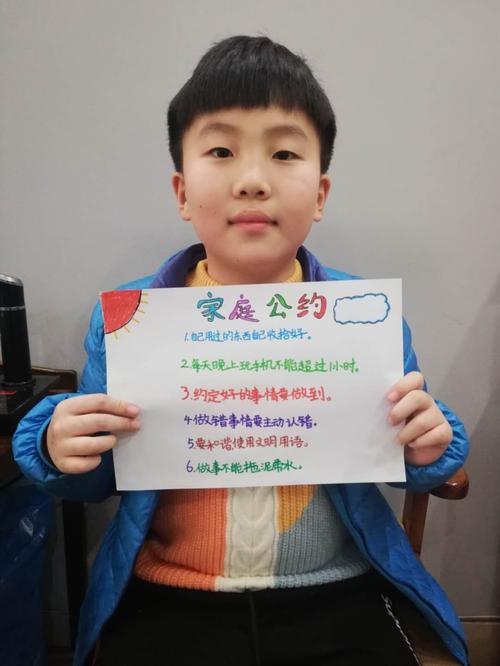 家庭公约
1.自己用过的东西自己收拾好。
2.每天晚上玩手机不能超过1小时。
3.约定好的事情要做到。
4.做错事情要主动认错。
5.要和谐使用文明用语。
6.做事不能拖泥带水。